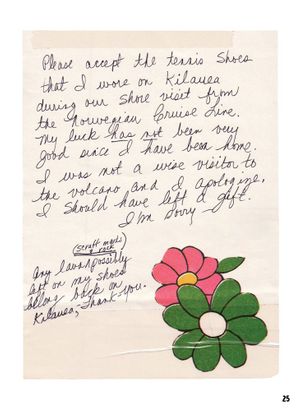 Please accept the tennis shoes
that I wore on Kilauea
during our shore visit from
the Norwegian Cruise Line.
My luck has not been very
good since I have been home.
I was not a wise visitor to
the volcano and I apologize,
I should have left a gift.
I'm Sorry
(Scuff marks
& rock)
Any lava possibly
left on my shoes
belong back on
Kilauea, Thank-You.
25